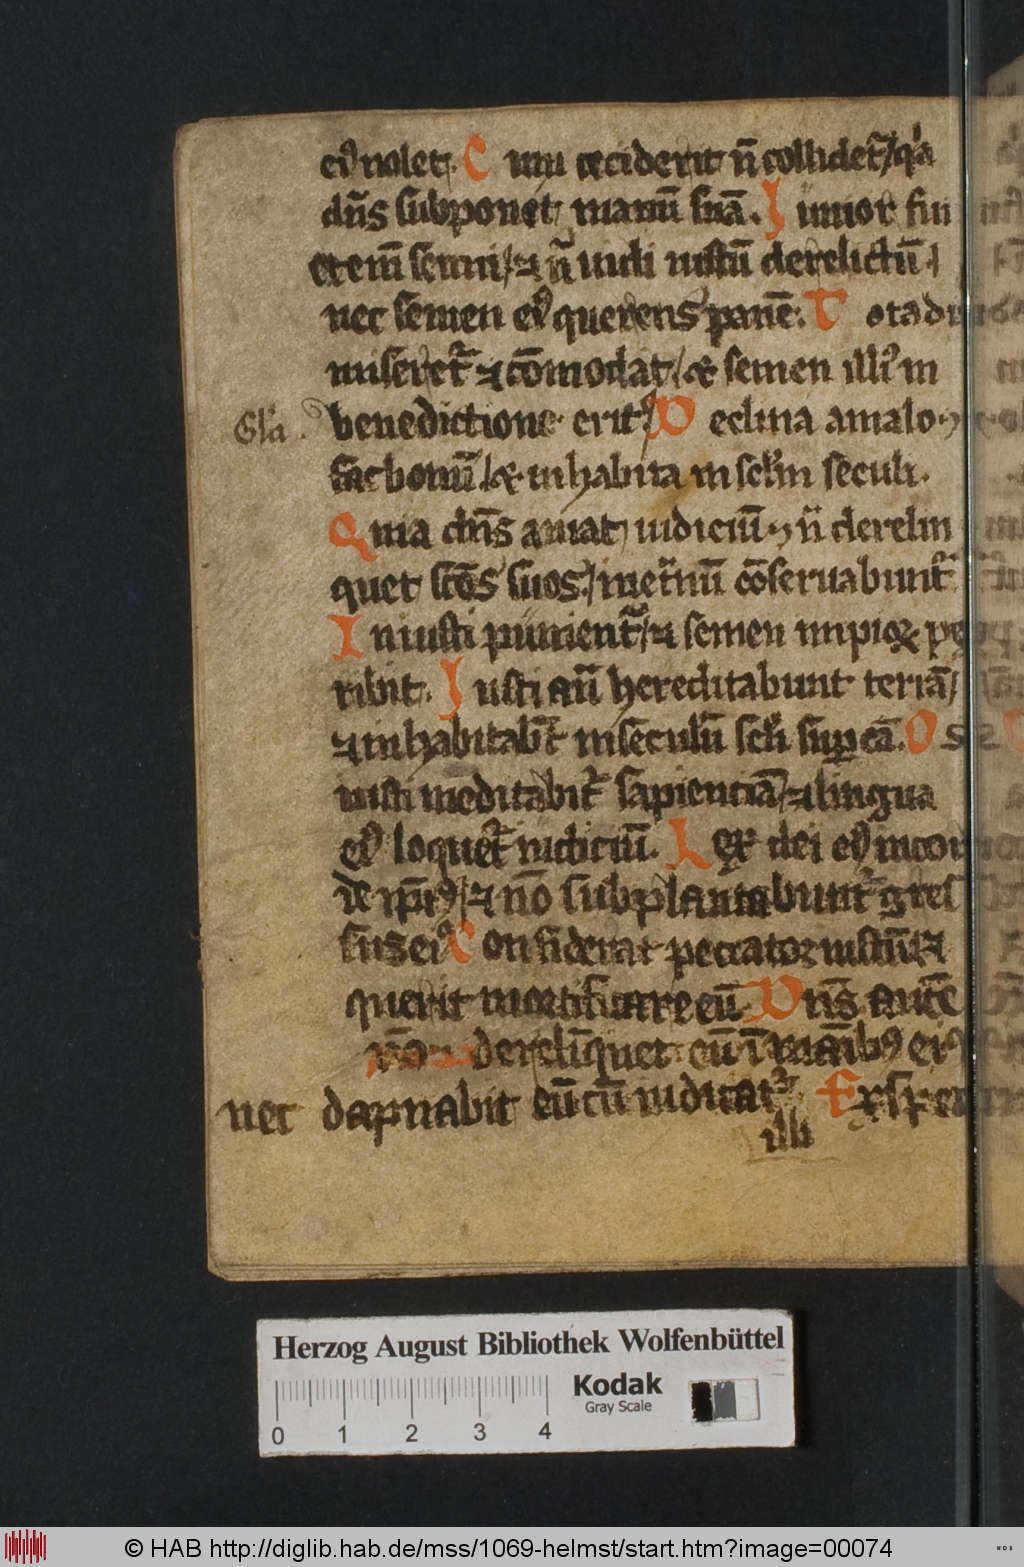 eiꝰ uolet. Cum ceciderit n̄ collidet̄ / qͥa
dn̄s subponet manū suā. Iunior fui
etem̄ senui / ⁊ n̄ uidi iustū derelictū /
nec semen eiꝰ querens panē. Tota die
miseret̄ ⁊ cōmodat / et semen illiꝰ in
Gl̄a .
benedictione erit. Declina a malo ⁊
fac bonū / et inhabita in sc̄lm seculi.
Quia dn̄s amat iudiciū ⁊ n̄ derelin
quet sc̄os suos / inet̄nū cōseruabunt̄
Iniusti punient̄ / ⁊ semen impioꝝ pe
ribit. Iusti aū hereditabunt terrā /
⁊ inhabitab̄t in seculū sc̄li suꝑ eā. Os
iusti meditabit̄ sapienciā / ⁊ lingua
eiꝰ loquet̄ iudiciū. Lex dei eiꝰ in cor
de ip̄iꝰ / ⁊ nō subplantabunt̄ gres
sus eiꝰ Considerat peccator iustū / ⁊
querit mortificare eū Dn̄s autē
nō derelīquet eū ī manibꝰ eiꝰ
nec dapnabit eū cū iudicat̄ Exspec
illi
Herzog August Bibliothek Wolfenbüttel
Kodak
Gray Scale
0 1 2 3 4
© HAB http://diglib.hab.de/mss/1069-helmst/start.htm?image=00074